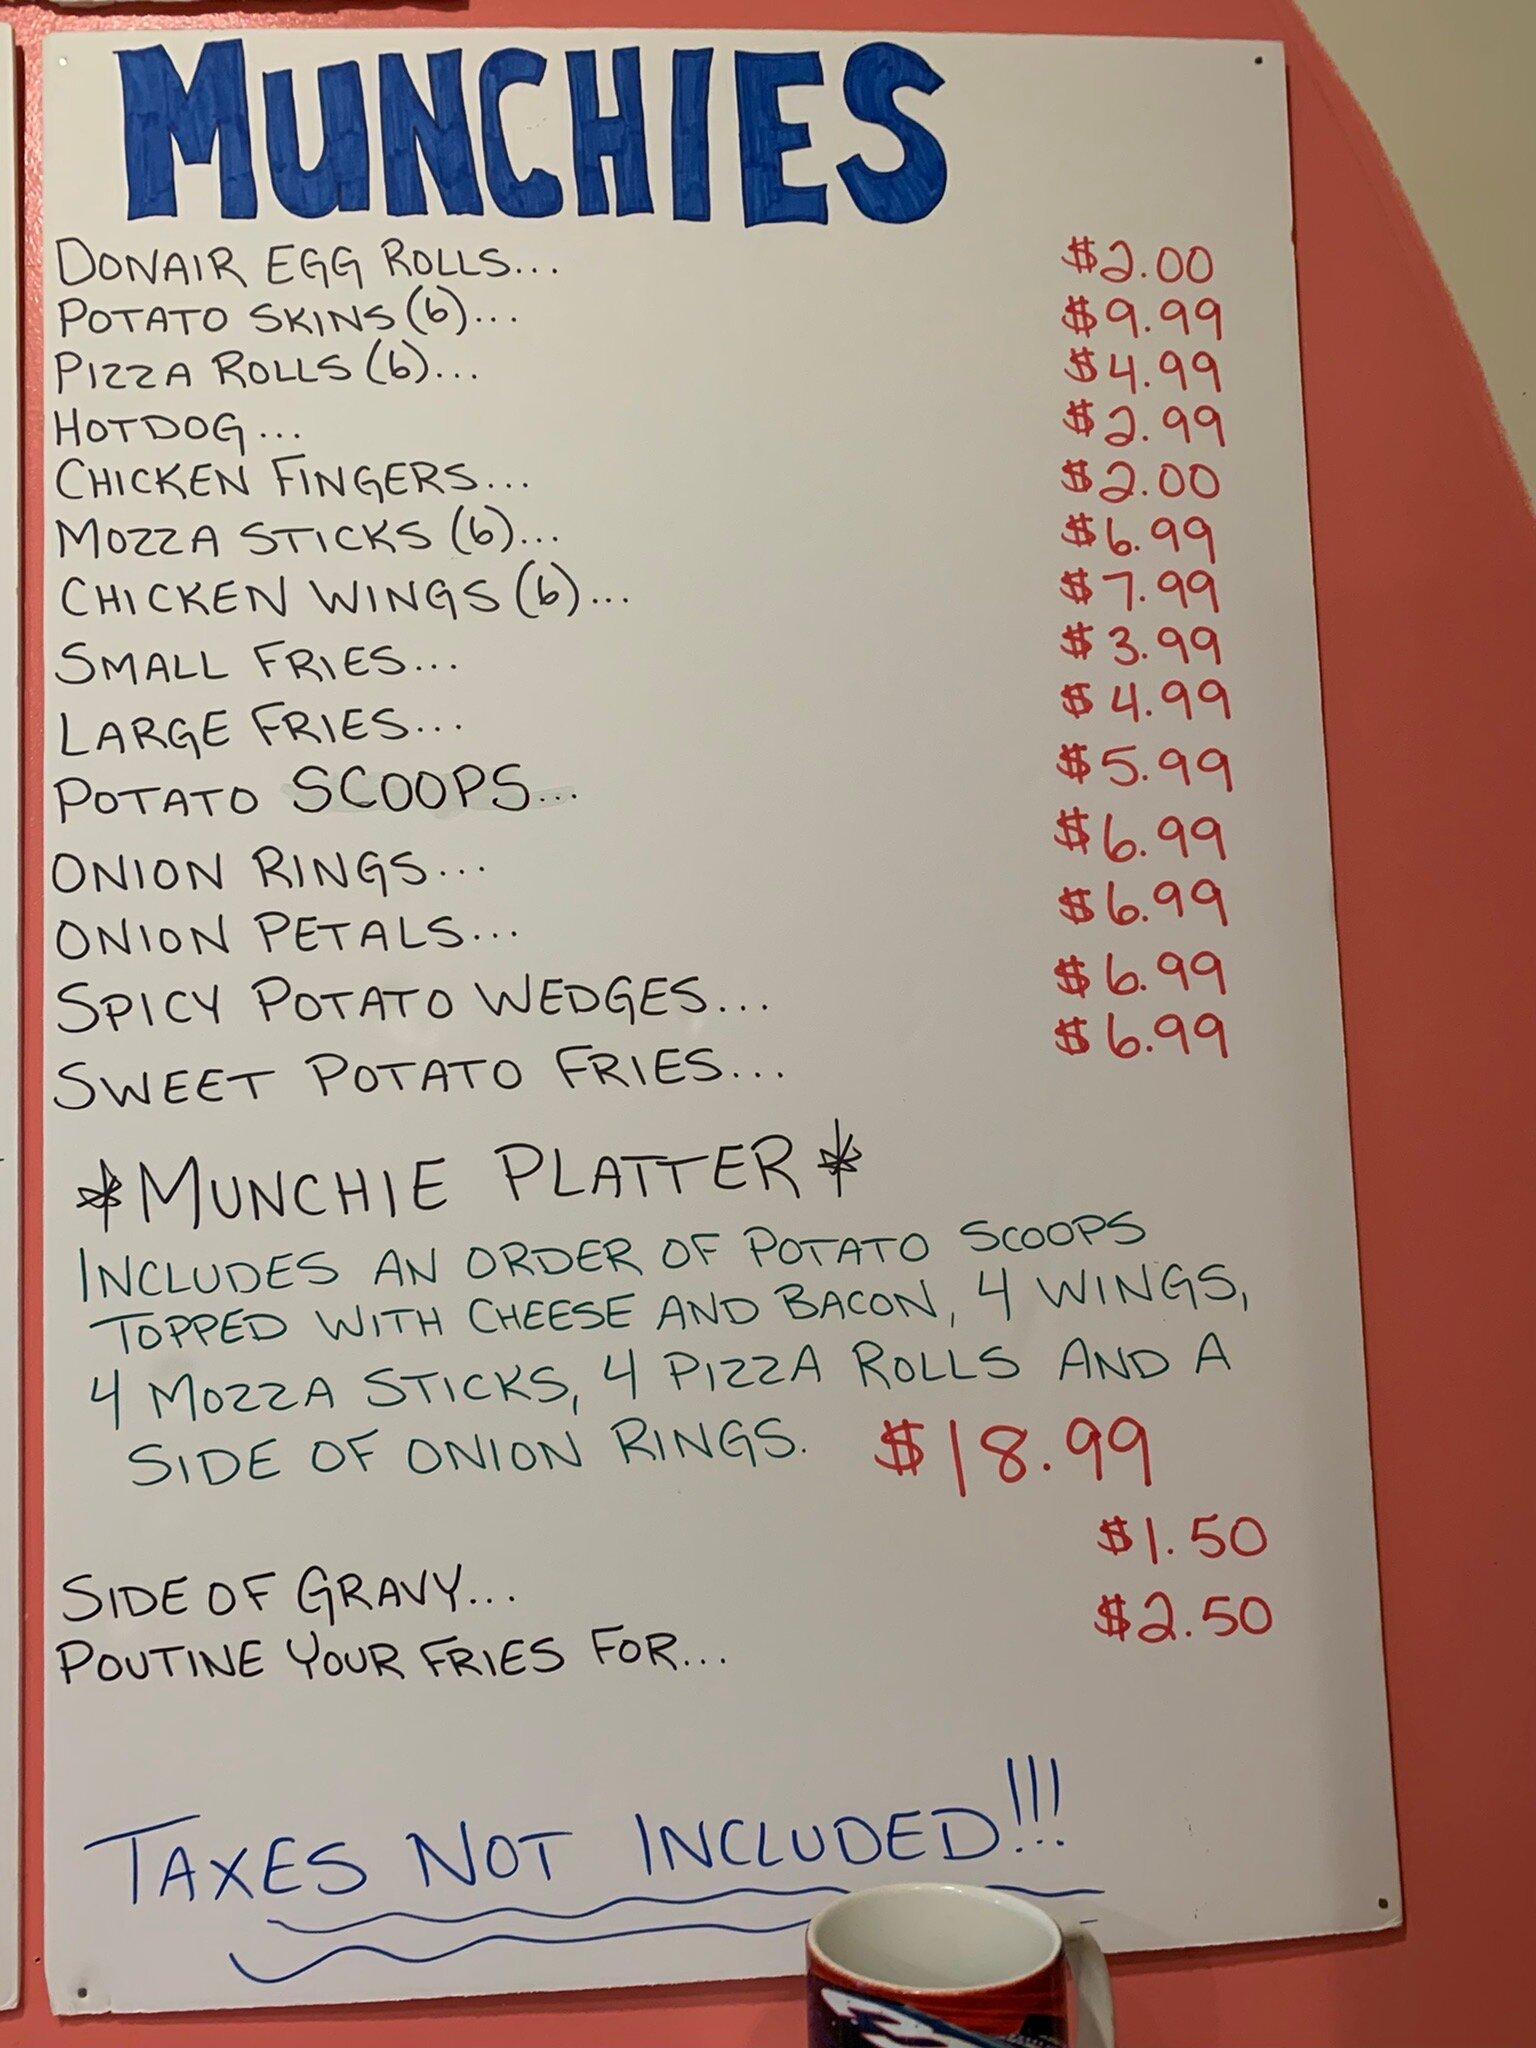 MUNCHIES
DONAIR EGG ROLLS... $2.00
POTATO SKINS (6)... $9.99
PIZZA ROLLS (6)... $4.99
HOTDOG... $2.99
CHICKEN FINGERS... $2.00
MOZZA STICKS (6)... $6.99
CHICKEN WINGS (6)... $7.99
SMALL FRIES... $3.99
LARGE FRIES... $4.99
POTATO SCOOPS... $5.99
ONION RINGS... $6.99
ONION PETALS... $6.99
SPICY POTATO WEDGES... $6.99
SWEET POTATO FRIES... $6.99
*MUNCHIE PLATTER*
INCLUDES AN ORDER OF POTATO SCOOPS
TOPPED WITH CHEESE AND BACON, 4 WINGS,
4 MOZZA STICKS, 4 PIZZA ROLLS AND A
SIDE OF ONION RINGS. $18.99
SIDE OF GRAVY... $1.50
POUTINE YOUR FRIES FOR... $2.50
TAXES NOT INCLUDED!!!